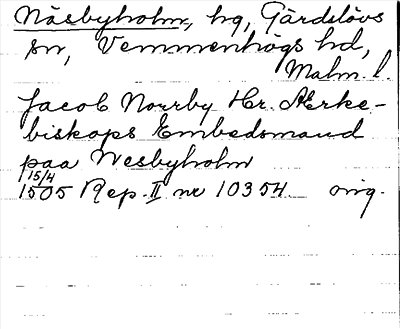 Näsbyholm, hg, Gärdslövs
sn, Vemmenhögs hd,
Malm. l.
Jacob Norrby Hr. Ærke-
biskops Embedsmand
paa Nesbyholm
15/4
1505 Rep. II nr 10354. orig.